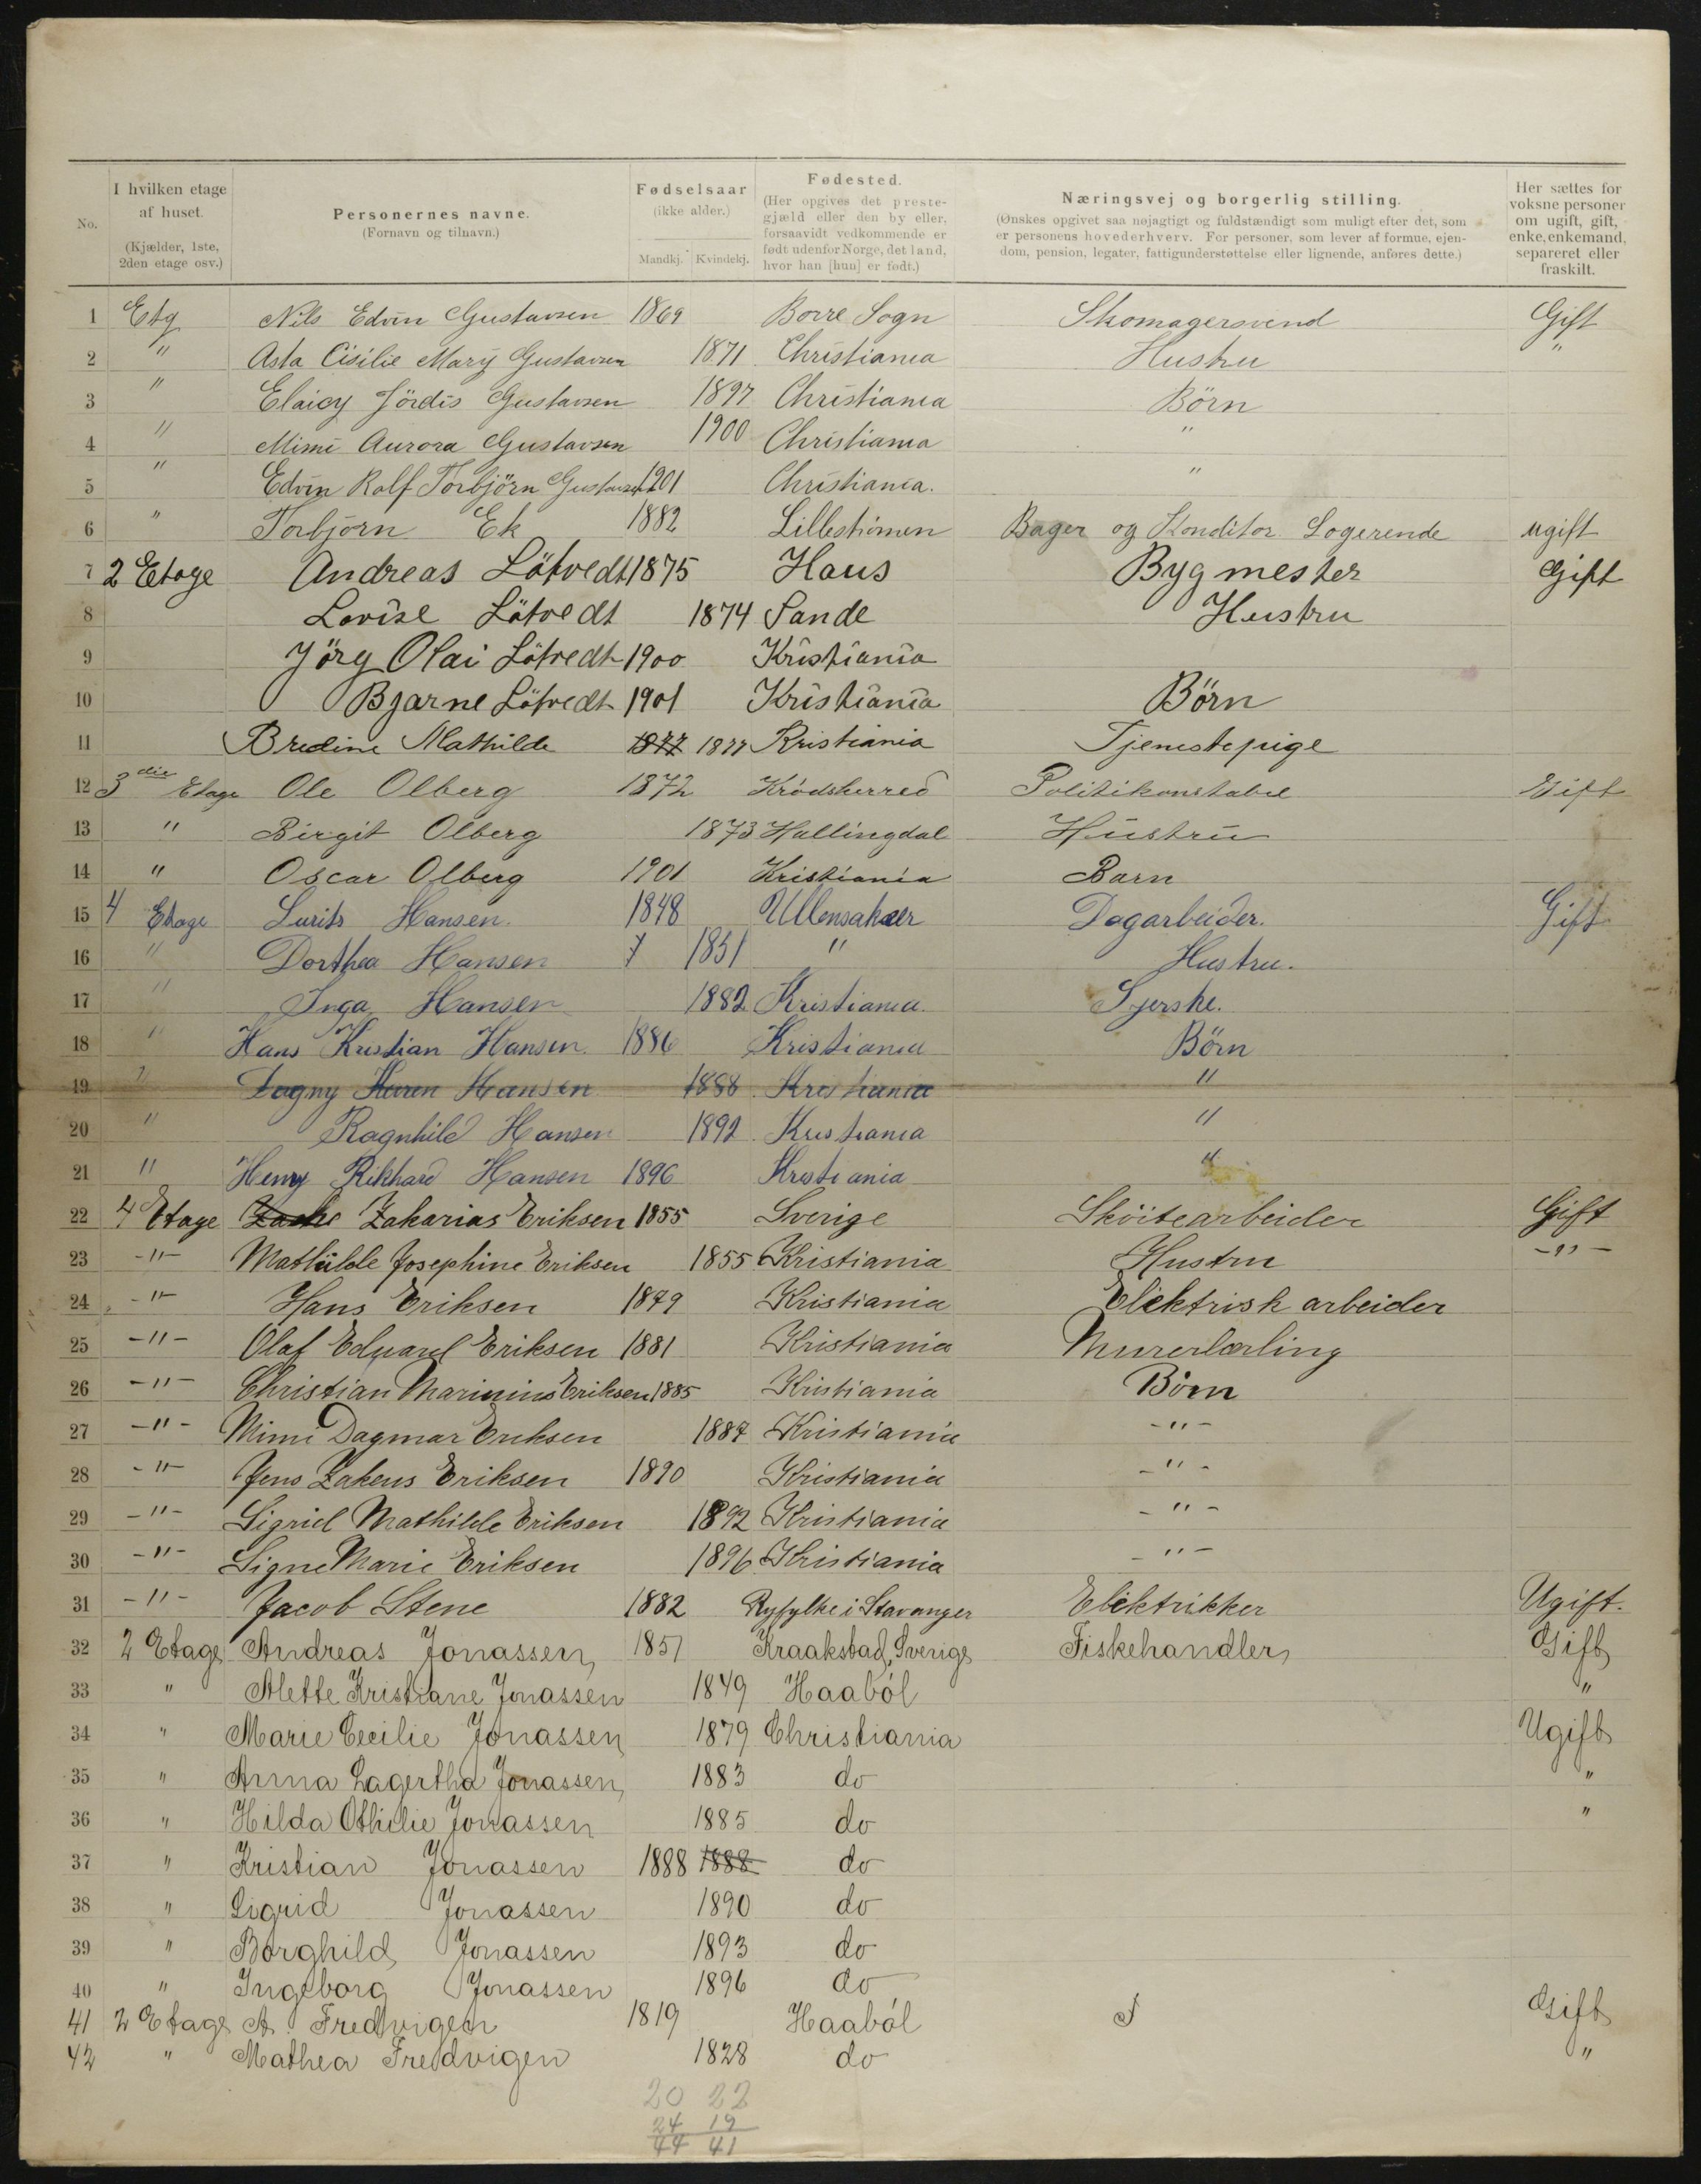 No. I hvilken etage af huset. (Kjælder, 1ste, 2den etage osv.) Personernes navne. (Fornavn og tilnavn.) Fødselsaar (ikke alder.) Mandkj. Kvindekj. Fødested. (Her opgives det prestegjæld eller den by eller, forsaavidt vedkommende er født udenfor Norge, det land, hvor han [hun] er født.) Næringsvej og borgerlig stilling. (Ønskes opgivet saa nøjagtigt og fuldstændigt som muligt efter det, som er personens hovederhverv. For personer, som lever af formue, ejendom, pension, legater, fattigunderstøttelse eller lignende, anføres dette.) Her sættes for voksne personer om ugift, gift, enke, enkemand, separeret eller fraskilt.
1 Etg Nils Edvin Gustavsen 1869 Borre Sogn Skomagersvend Gift
2 " Asta Cisilie Mary Gustavsen 1871 Christiania Hustru "
3 " Elaicy Jördis Gustavsen 1897 Christiania Börn
4 " Mimi Aurora Gustavsen 1900 Christiania "
5 " Edvin Rolf Torbjörn Gustavsen 1901 Christiania. "
6 " Torbjörn Ek 1882 Lillestrømen Bager og Konditor Logerende ugift
7 2 Etage Andreas Lötvedt 1875 Haus Bygmester Gift
8 Lovise Lötvedt 1874 Sande Hustru
9 Jörg Olai Lötvedt 1900 Kristiania
10 Bjarne Lötvedt 1901 Kristiania Börn
11 Bredine Mathilde 1877 1877 Kristiania Tjenestepige
12 3die Etage Ole Olberg 1872 Krödsherred Politikonstabel Gift
13 " Birgit Olberg 1873 Hallingdal Hustru
14 " Oscar Olberg 1901 Kristiania Barn
15 4 Etage Lurits Hansen. 1848 Ullensaker Dagarbeider. Gift
16 " Dorthea Hansen 1851 " Hustru.
17 " Inga Hansen 1882 Kristiania. Syerske.
18 " Hans Kristian Hansen. 1886 Kristiania Börn
19 " Dagny Karen Hansen 1888 Kristiania "
20 " Ragnhild Hansen 1892 Kristiania "
21 " Henry Rikhard Hansen 1896 Kristiania "
22 4 Etage Zakarias Eriksen 1855 Sverige Sköitearbeider Gift
23 -"- Mathilde Josephine Eriksen 1855 Kristiania Hustru -"-
24 -"- Hans Eriksen 1879 Kristiania Elektrisk arbeider
25 -"- Olaf Edvard Eriksen 1881 Kristiania Murerlærling
26 -"- Christian Marinius Eriksen 1885 Kristiania Börn
27 -"- Mimi Dagmar Eriksen 1887 Kristiania -"-
28 -"- Jens Zakeus Eriksen 1890 Kristiania -"-
29 -"- Sigrid Mathilde Eriksen 1892 Kristiania -"-
30 -"- Signe Marie Eriksen 1896 Kristiania -"-
31 -"- Jacob Stene 1882 Ryfylke i Stavanger Elektrikker Ugift.
32 2 Etage Andreas Jonassen, 1851 Kraakstad, Sverige Fiskehandler Gift
33 " Alette Kristiane Jonassen 1849 Haaböl "
34 " Marie Cecilie Jonassen 1879 Christiania Ugift
35 " Anna Lagertha Jonassen, 1883 do "
36 " Hilda Othilie Jonassen 1885 do "
37 " Kristian Jonassen 1888 1888 do
38 " Sigrid Jonassen 1890 do
39 " Borghild Jonassen 1893 do
40 " Ingeborg Jonassen 1896 do
41 2 Etage A. Fredvigen 1819 Haaböl Gift
42 " Mathea Fredvigen 1828 do "
20 22
24 19
44 41